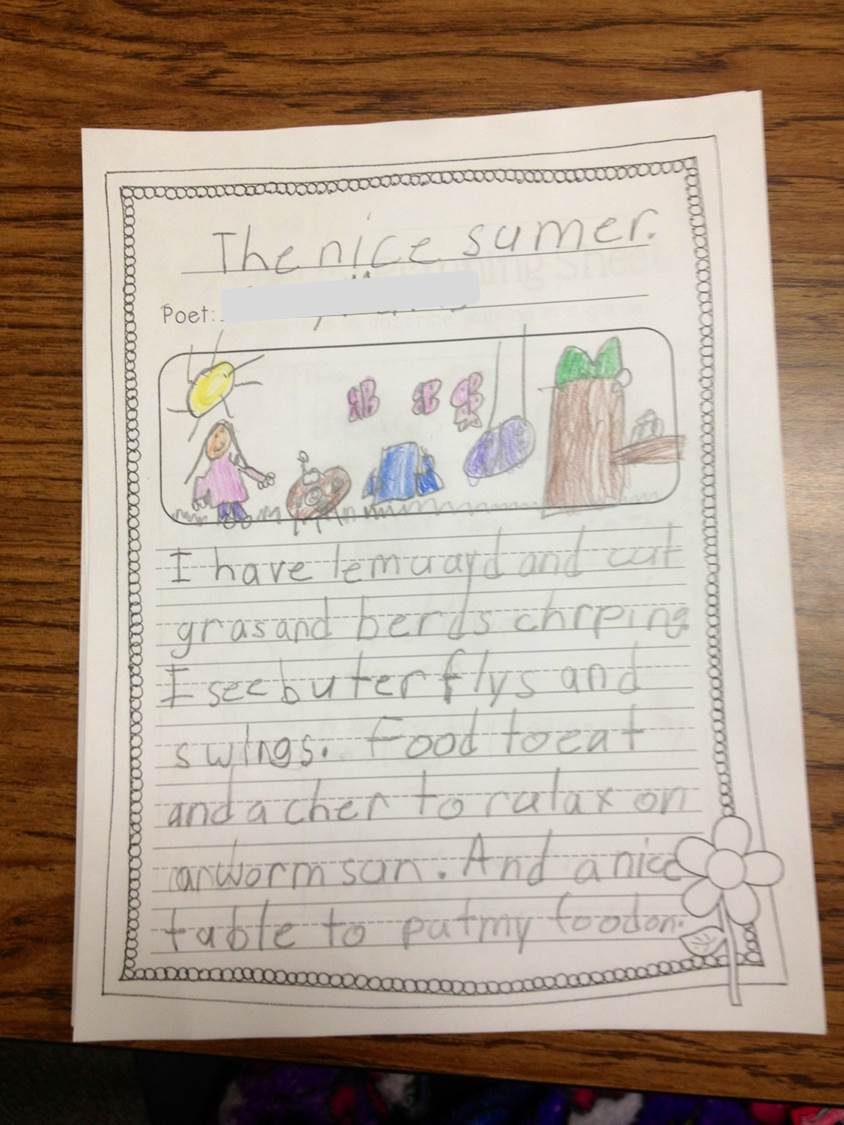 The nice sumer.
Poet:
I have lemuayd and cut
gras and berds chrping
I see buterflys and
swings. Food to eat
and a cher to ralax on
worm sun. And a nice
table to put my food on.